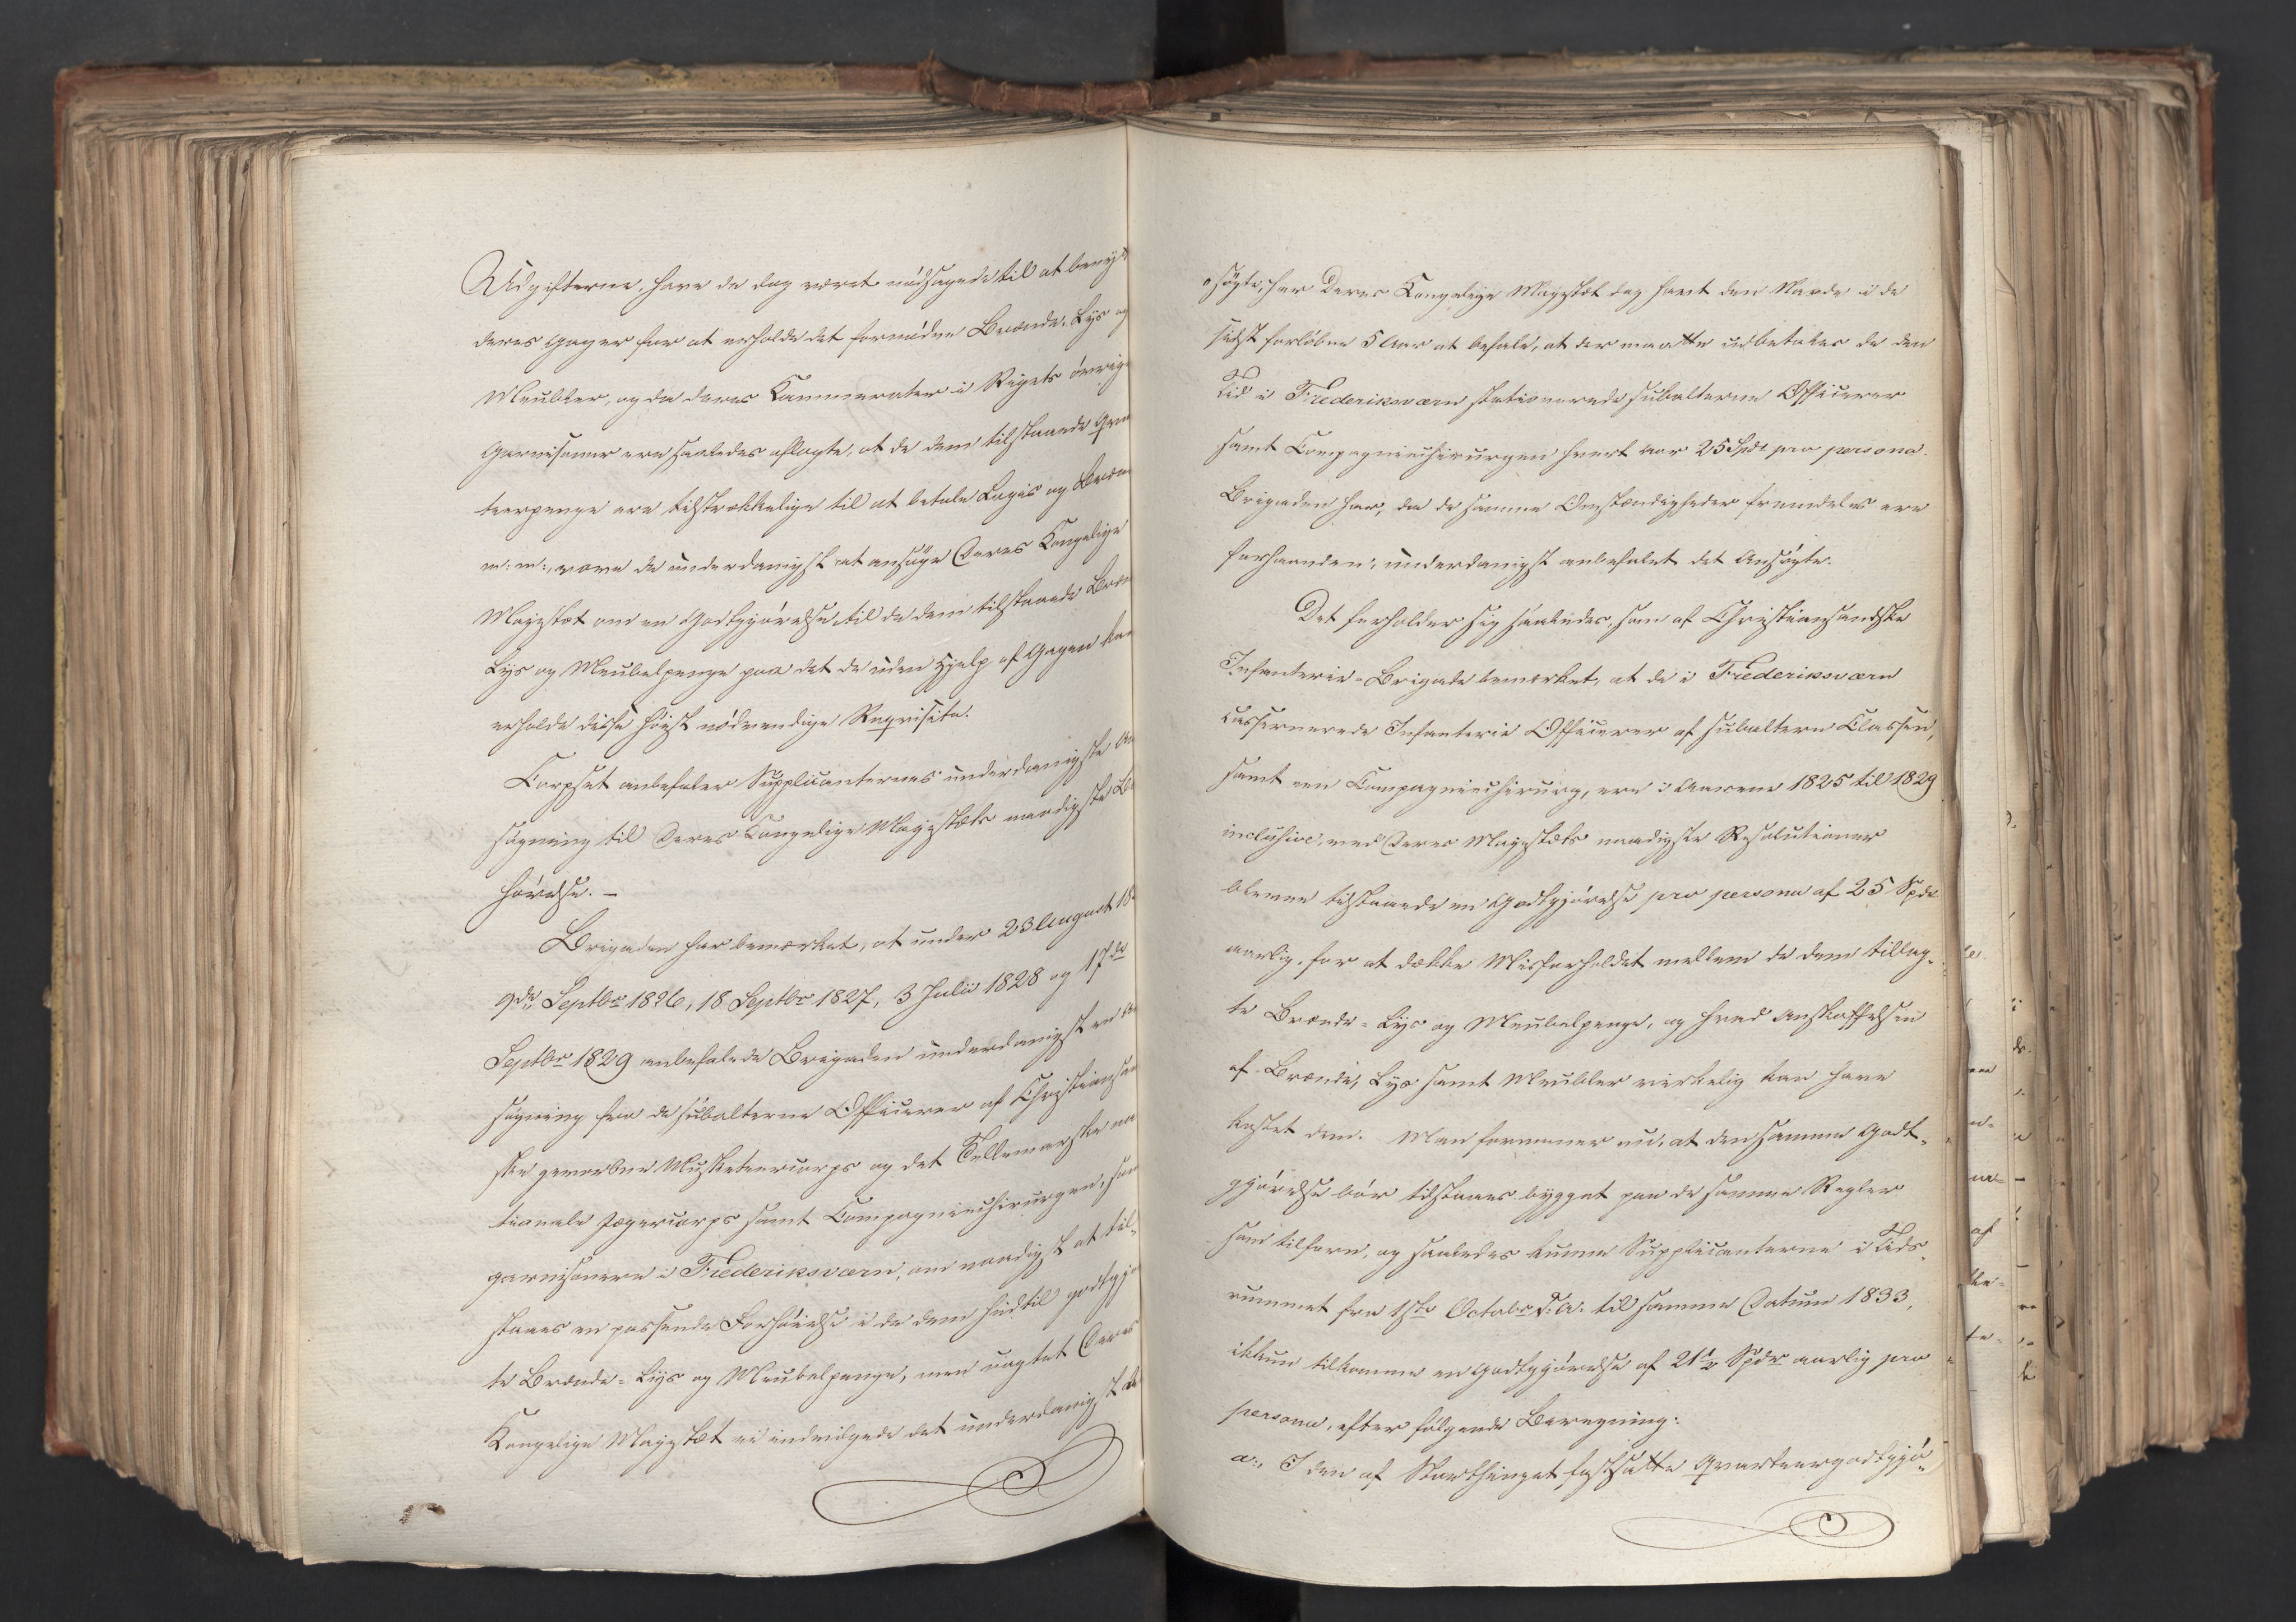 Udgifterne, have de dog været nødsagede til at beny
deres Gager for at erholde det fornødne Brænde, Lys og
Meubler, og da deres Kammerater i Rigets øvrige
Garnisoner ere saaledes aflagte, at de dem tilstaaede Qvar
teerpenge ere tilstrækkelige til at betale Logis og Bræn
m: m:, vove de underdanigst at ansøge Deres Kongelige
Majestæt om en Godtgjørelse til de dem tilstaaede Bræn
Lys og Meubelpenge paa det de uden Hjelp af Gagen kan
erholde disse høist nødvendige Reqvisita.
Corpset anbefaler Supplicanternes underdanigste An
søgning til Deres Kongelige Majestæts naadigste Bø
hørelse. –
Brigaden har bemærket, at under 23 August 18
9de Septbr 1826, 18 Septbr 1827, 3 Julii 1828 og 17de
Septbr 1829 anbefalede Brigaden underdanigst en An
søgning fra de subalterne Officierer af Christiansan
ske gevorbne Musketeercorps og det Tellemarkske na
tionale Jægercorps samt Compagniechirurgen, som
garnisonere i Frederiksværn, om naadigst at til-
staaes en passende Forhøielse i de dem hidtil godtgjo
te Brænde- Lys og Meubelpenge, men uagtet Deres
Kongelige Majestæt ei indvilgede det underdanigst An
søgte, har Deres Kongelige Majestæt dog havt den Naade i de
sidst forløbne 5 Aar at befale, at der maatte udbetales de den
Tid i Frederiksværn stationerede subalterne Officierer
samt Compagniechirurgen hvert Aar 25 Spdr pro persona.
Brigaden har, da de samme Omstændigheder fremdeles ere
forhaanden, underdanigst anbefalet det Ansøgte.
Det forholder sig saaledes, som af Christiansandske
Infanterie-Brigade bemærket, at de i Frederiksværn
casernerede Infanterie Officierer af subaltern Classen,
samt een Compagniechirurg, ere i Aarene 1825 til 1829
inclusive, ved Deres Majestæts naadigste Resolutioner
blevne tilstaaede en Godtgjørelse pro persona af 25 Spdr
aarlig, for at dække Misforholdet mellem de dem tillag-
te Brænde- Lys og Meubelpenge, og hvad Anskaffelsen
af Brænde, Lys samt Meubler virkelig kan have
kostet dem. Man formener nu, at den samme Godt-
gjørelse bør tilstaaes bygget paa de samme Regler
som tilforn, og saaledes kunne Supplicanterne i Tids-
rummet fra 1ste Octobr d: A. til samme Datum 1833,
ikkun tilkomme en Godtgjørelse af 21½ Spdr aarlig pro
persona, efter følgende Beregning:
a:, I den af Storthinget fastsatte Qvarteergodtgjø-